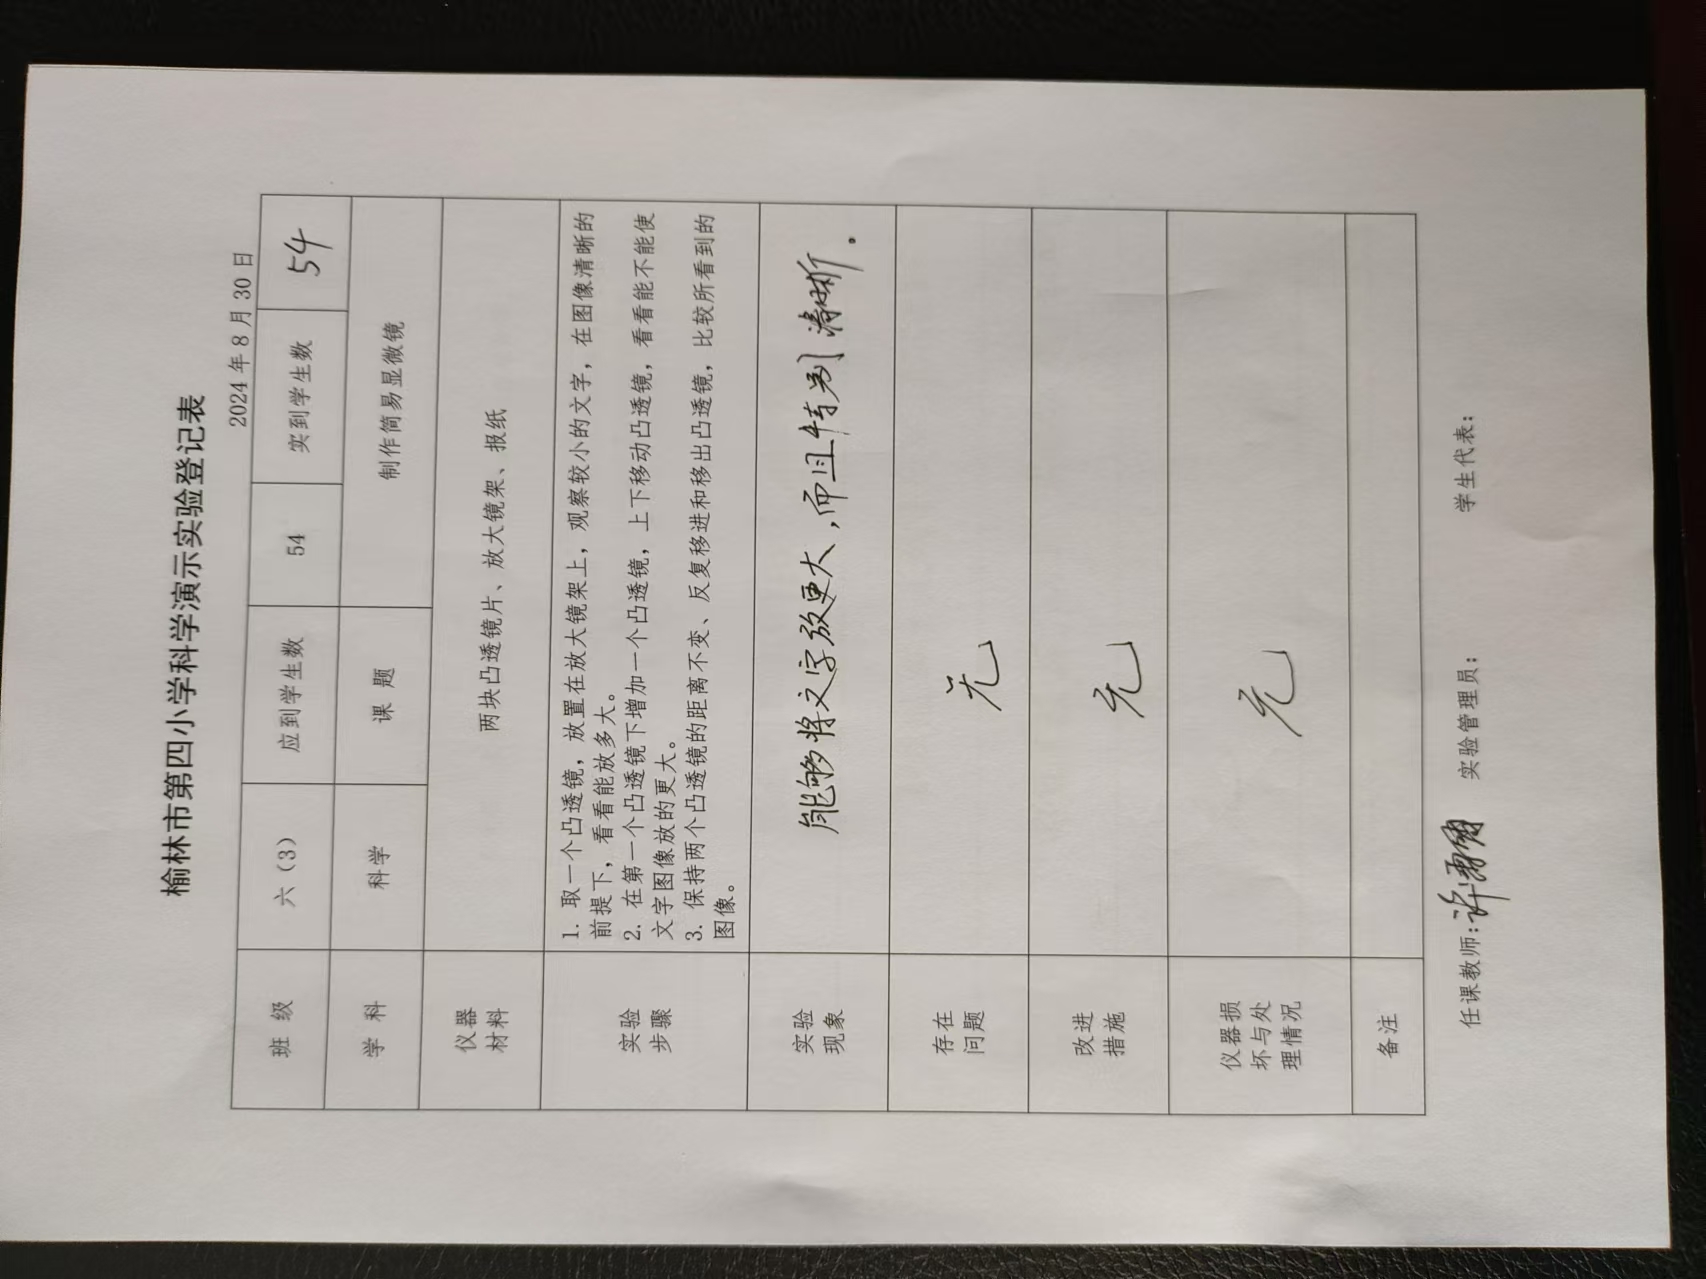 榆林市第四小学科学演示实验登记表
2024 年 8 月 30 日
班 级 六（3） 应到学生数 54 实到学生数 54
学 科 科学 课 题 制作简易显微镜
仪器
材料
两块凸透镜片、放大镜架、报纸
实验
步骤
1. 取一个凸透镜，放置在放大镜架上，观察较小的文字，在图像清晰的
前提下，看看能放多大。
2. 在第一个凸透镜下增加一个凸透镜，上下移动凸透镜，看看能不能使
文字图像放的更大。
3. 保持两个凸透镜的距离不变、反复移进和移出凸透镜，比较所看到的
图像。
实验
现象
能够将文字放更大，而且特别清晰。
存在
问题
无
改进
措施
无
仪器损
坏与处
理情况
无
备注
任课教师：许 实验管理员： 学生代表：